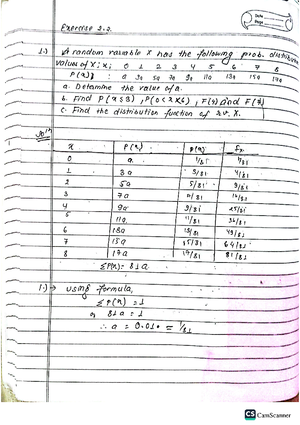 Date
Page
Exercise 2.2.
1.) A random ravable X has the following prob. distribution
values of X: x; 0 1 2 3 4 5 6 7 8
P(x): a 3a 5a 7a 9a 11a 13a 15a 17a
a. Determine the value of a.
b. Find P(x≤3), P(0<x<6), F(5) and F(7)
c. Find the distribution function of r.v. X.
x P(x) p(x) Fx
0 a 1/81 1/81
1 3a 3/81 4/81
2 5a 5/81 9/81
3 7a 7/81 16/81
4 9a 9/81 25/81
5 11a 11/81 36/81
6 13a 13/81 49/81
7 15a 15/81 64/81
8 17a 17/81 81/81
≤P(x)= 81a
1.) → using formula,
≤P(x) = 1
or 81a = 1
∴ a = 0.01 = 1/81
CS CamScanner